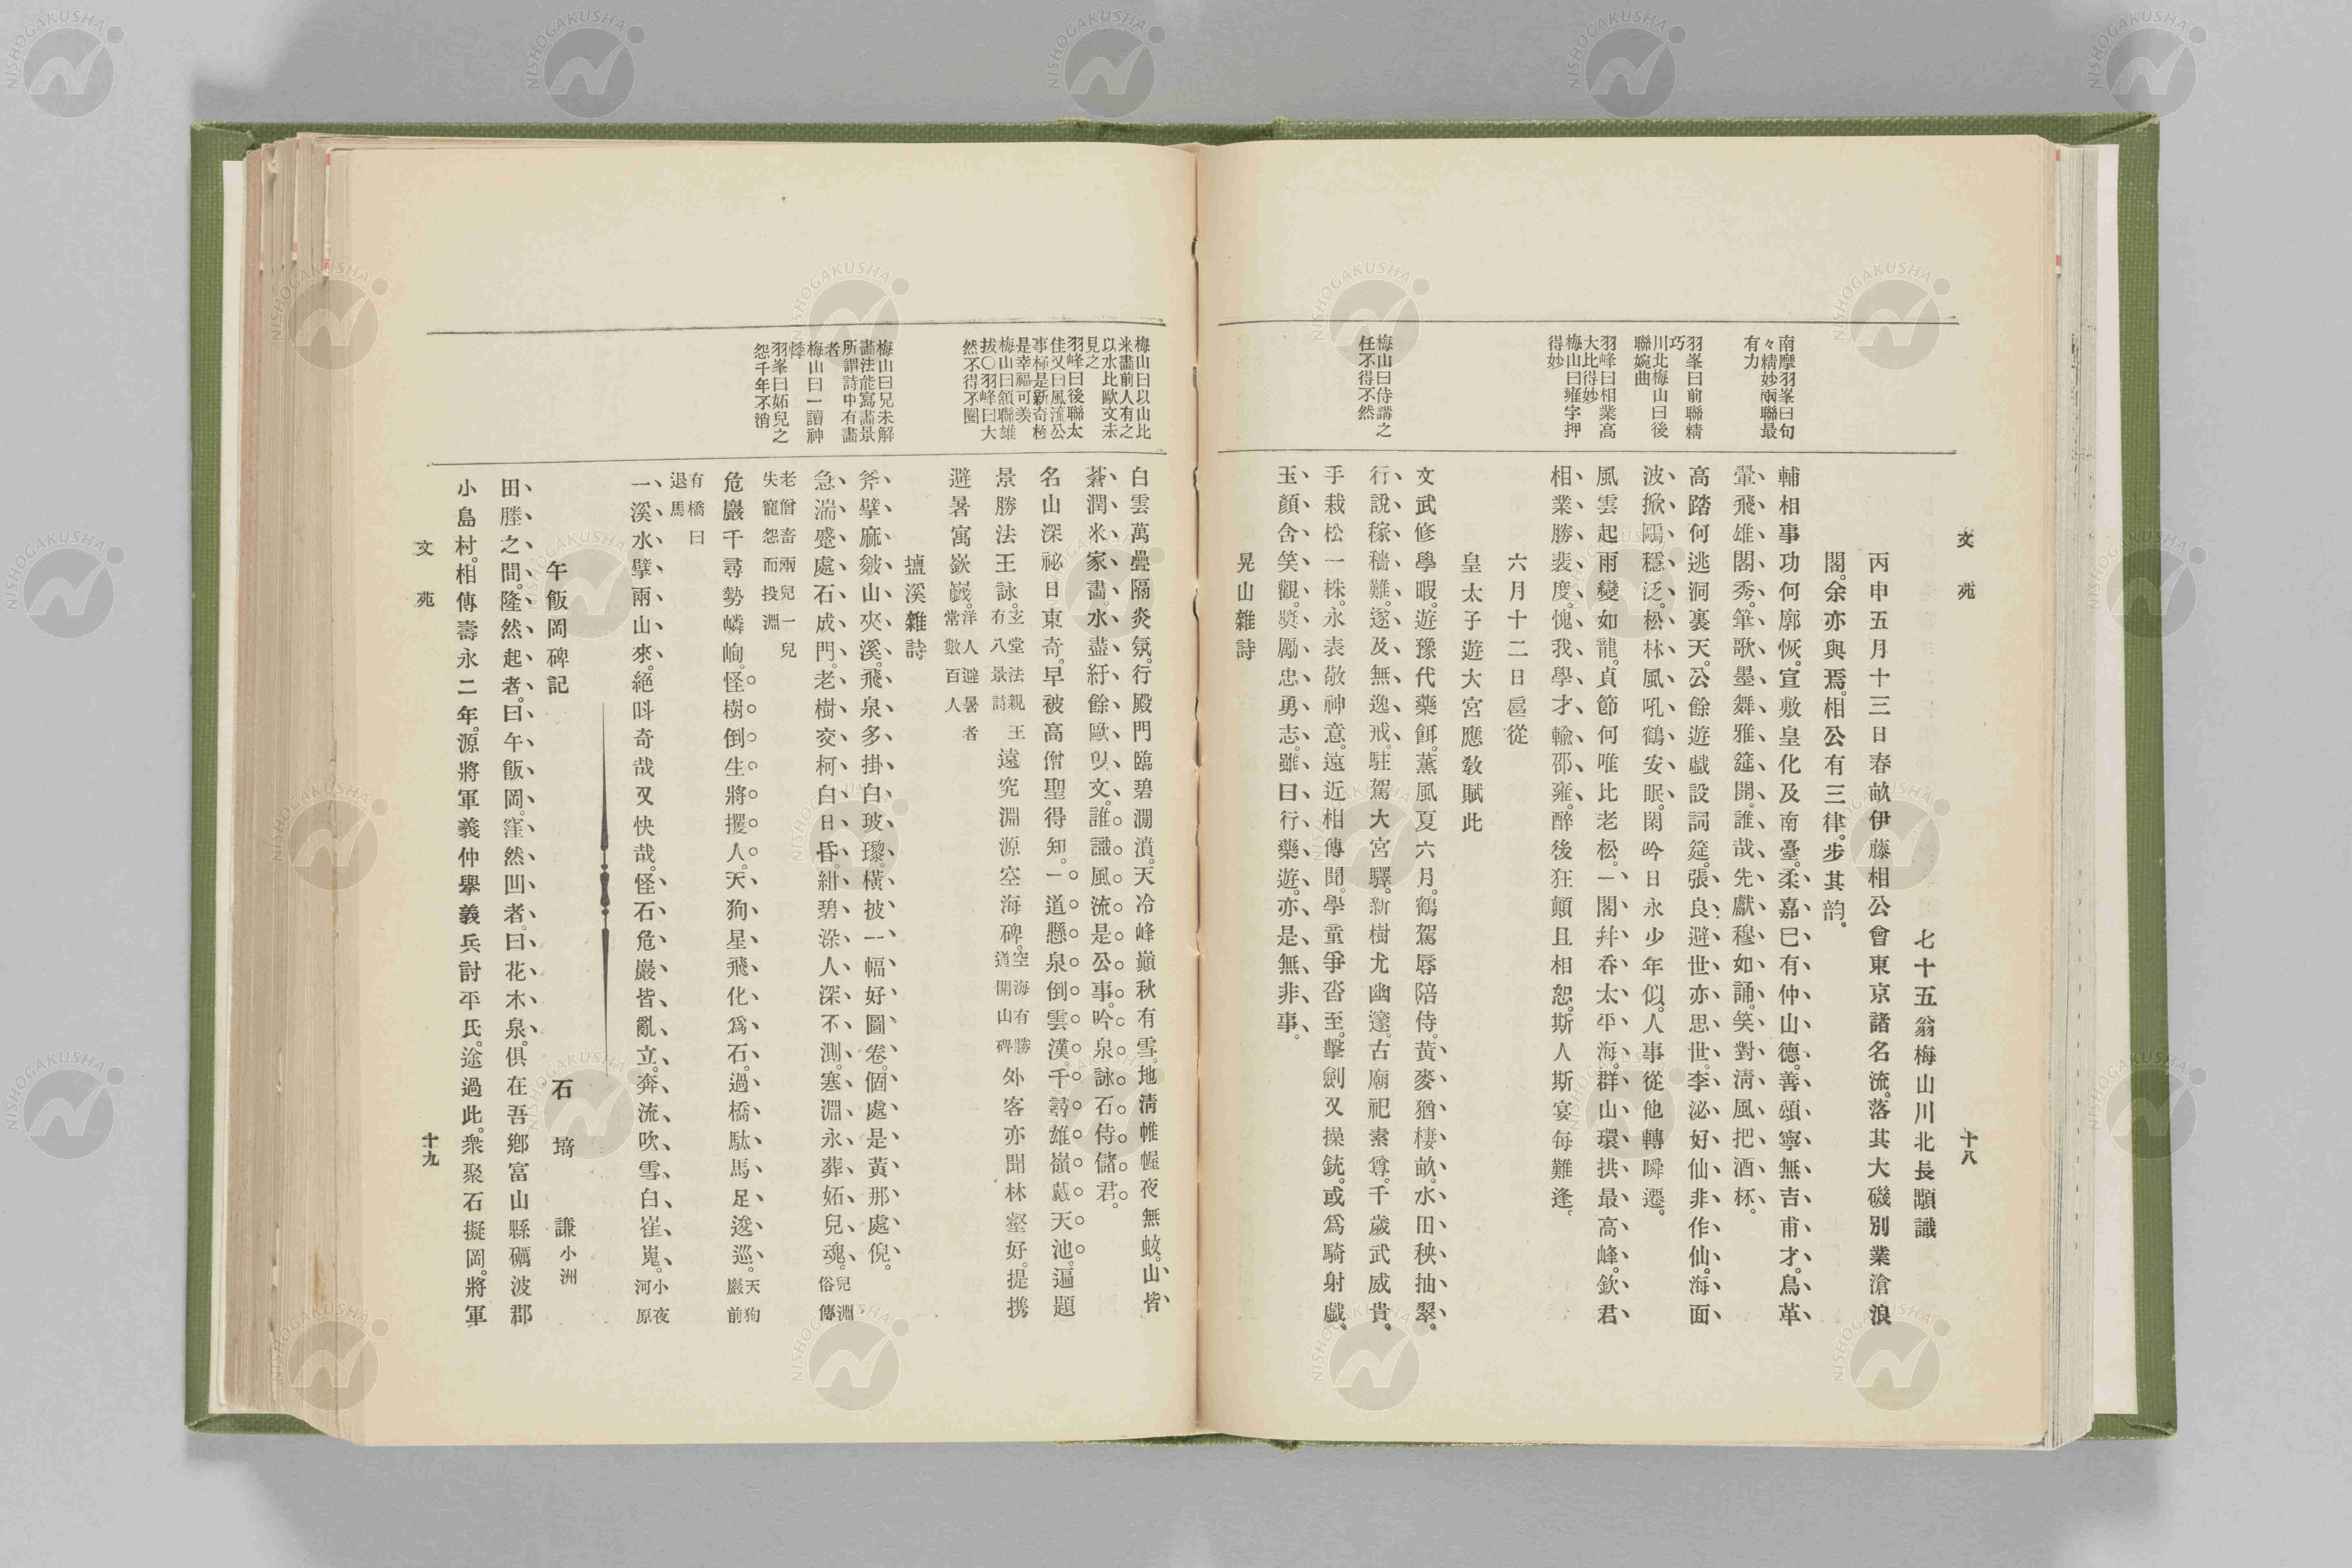 文苑
十八
南摩羽峯曰句
々精妙兩聯最
有力
羽峯曰前聯精
巧
川北梅山曰後
聯婉曲
羽峰曰相業高
大比得妙
梅山曰雍字押
得妙
梅山曰侍講之
任不得不然
七十五翁梅山川北長顒識
丙申五月十三日春畝伊藤相公會東京諸名流。落其大磯別業滄浪
閣。余亦與焉。相公有三律。步其韵。
輔相事功何廓恢。宣敷皇化及南臺。柔嘉已有仲山德。善頌寧無吉甫才。鳥革
翬飛雄閣秀。筆歌墨舞雅筵開。誰哉先獻穆如誦。笑對淸風把酒杯。
高踏何逃洞裏天。公餘遊戲設詞筵。張良避世亦思世。李泌好仙非作仙。海面
波掀鷗穩泛。松林風吼鶴安眠。閑吟日永少年似。人事從他轉瞬遷。
風雲起雨變如龍。貞節何唯比老松。一閣幷呑太平海。群山環拱最高峰。欽君
相業勝裴度。愧我學才輸邵雍。醉後狂顛且相恕。斯人斯宴每難逢。
六月十二日扈從
皇太子遊大宮應敎賦此
文武修學暇。遊豫代藥餌。薰風夏六月。鶴駕辱陪侍。黃麥猶棲畝。水田秧抽翠。
行說稼穡難。遂及無逸戒。駐駕大宮驛。新樹尤幽邃。古廟祀素尊。千歲武威貴。
手栽松一株。永表敬神意。遠近相傳聞。學童爭沓至。擊劍又操銃。或爲騎射戲。
玉顏含笑觀。奬勵忠勇志。雖曰行藥遊。亦是無非事。
晃山雜詩
梅山曰以山比
米畫前人有之
以水比歐文未
見之
羽峰曰後聯太
佳又曰風流公
事極是新奇極
是幸福可羨
梅山曰頷聯雄
拔〇羽峰曰大
然不得不圈
梅山曰兄未解
畫法能寫畫景
所謂詩中有畫
者
梅山曰一讀神
悸
羽峯曰妬兒之
怨千年不消
白雲萬疊隔炎氛。行殿門臨碧澗濆。天冷峰巓秋有雪。地淸帷幄夜無蚊。山皆
蒼潤米家畫。水盡紆餘歐氏文。誰識風流是公事。吟泉詠石侍儲君。
名山深祕日東奇。早被高僧聖得知。一道懸泉倒雲漢。千尋雄嶺戴天池。遍題
景勝法王詠。玄堂法親王有八景詩遠究淵源空海碑。空海有勝道開山碑外客亦聞林壑好。提携
避暑寓嶔巇。洋人避暑者常數百人
壒溪雜詩
斧擘麻皴山夾溪。飛泉多掛白玻瓈。橫披一幅好圖卷。個處是黃那處倪。
急湍蹙處石成門。老樹交柯白日昏。紺碧染人深不測。寒淵永葬妬兒魂。兒淵俗傳
老僧畜兩兒一兒失寵怨而投淵
危巖千尋勢嶙峋。怪樹倒生將攫人。天狗星飛化爲石。過橋駄馬足逡巡。天狗巖前
有橋曰退馬
一溪水擘兩山來。絕叫奇哉又快哉。怪石危巖皆亂立。奔流吹雪白崔嵬。小夜河原
午飯岡碑記
石埼謙小洲
田塍之間。隆然起者。曰午飯岡。窪然凹者。曰花木泉。俱在吾鄉富山縣礪波郡
小島村。相傳壽永二年。源將軍義仲擧義兵討平氏。途過此。衆聚石擬岡。將軍
文苑
十九